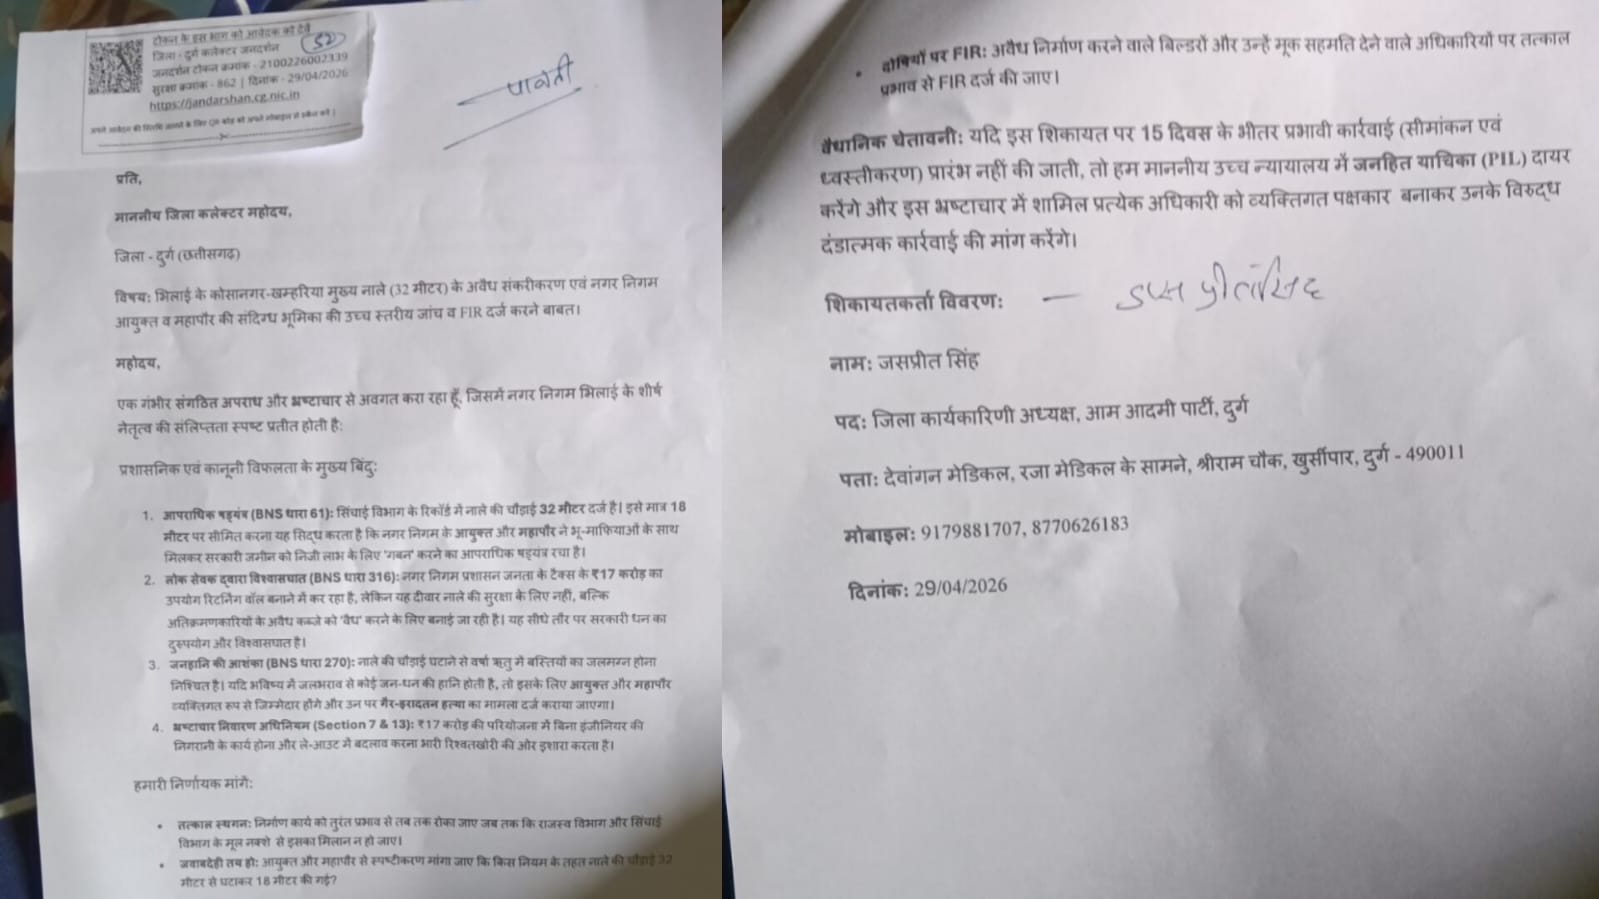 टोकन के इस भाग को आवेदक को देवें
जिला - दुर्ग कलेक्टर जनदर्शन
52
जनदर्शन टोकन क्रमांक - 2100226002339
सुरक्षा क्रमांक - 862 | दिनांक - 29/04/2026
https://jandarshan.cg.nic.in
अपने आवेदन की स्थिति जानने के लिए QR कोड को अपने मोबाइल से स्कैन करें |
पावती
प्रति,
माननीय जिला कलेक्टर महोदय,
जिला - दुर्ग (छत्तीसगढ़)
विषय: भिलाई के कोसानगर-खम्हरिया मुख्य नाले (32 मीटर) के अवैध संकरीकरण एवं नगर निगम
आयुक्त व महापौर की संदिग्ध भूमिका की उच्च स्तरीय जांच व FIR दर्ज करने बाबत।
महोदय,
एक गंभीर संगठित अपराध और भ्रष्टाचार से अवगत करा रहा हूँ, जिसमें नगर निगम भिलाई के शीर्ष
नेतृत्व की संलिप्तता स्पष्ट प्रतीत होती है:
प्रशासनिक एवं कानूनी विफलता के मुख्य बिंदु:
1. आपराधिक षड्यंत्र (BNS धारा 61): सिंचाई विभाग के रिकॉर्ड में नाले की चौड़ाई 32 मीटर दर्ज है। इसे मात्र 18
मीटर पर सीमित करना यह सिद्ध करता है कि नगर निगम के आयुक्त और महापौर ने भू-माफियाओं के साथ
मिलकर सरकारी जमीन को निजी लाभ के लिए 'गबन' करने का आपराधिक षड्यंत्र रचा है।
2. लोक सेवक द्वारा विश्वासघात (BNS धारा 316): नगर निगम प्रशासन जनता के टैक्स के ₹17 करोड़ का
उपयोग रिटर्निंग वॉल बनाने में कर रहा है, लेकिन यह दीवार नाले की सुरक्षा के लिए नहीं, बल्कि
अतिक्रमणकारियों के अवैध कब्जे को 'वैध' करने के लिए बनाई जा रही है। यह सीधे तौर पर सरकारी धन का
दुरुपयोग और विश्वासघात है।
3. जनहानि की आशंका (BNS धारा 270): नाले की चौड़ाई घटाने से वर्षा ऋतु में बस्तियों का जलमग्न होना
निश्चित है। यदि भविष्य में जलभराव से कोई जन-धन की हानि होती है, तो इसके लिए आयुक्त और महापौर
व्यक्तिगत रूप से जिम्मेदार होंगे और उन पर गैर-इरादतन हत्या का मामला दर्ज कराया जाएगा।
4. भ्रष्टाचार निवारण अधिनियम (Section 7 & 13): ₹17 करोड़ की परियोजना में बिना इंजीनियर की
निगरानी के कार्य होना और ले-आउट में बदलाव करना भारी रिश्वतखोरी की ओर इशारा करता है।
हमारी निर्णायक मांगें:
• तत्काल स्थगन: निर्माण कार्य को तुरंत प्रभाव से तब तक रोका जाए जब तक कि राजस्व विभाग और सिंचाई
विभाग के मूल नक्शे से इसका मिलान न हो जाए।
• जवाबदेही तय हो: आयुक्त और महापौर से स्पष्टीकरण मांगा जाए कि किस नियम के तहत नाले की चौड़ाई 32
मीटर से घटाकर 18 मीटर की गई?
• दोषियों पर FIR: अवैध निर्माण करने वाले बिल्डरों और उन्हें मूक सहमति देने वाले अधिकारियों पर तत्काल
प्रभाव से FIR दर्ज की जाए।
वैधानिक चेतावनी: यदि इस शिकायत पर 15 दिवस के भीतर प्रभावी कार्रवाई (सीमांकन एवं
ध्वस्तीकरण) प्रारंभ नहीं की जाती, तो हम माननीय उच्च न्यायालय में जनहित याचिका (PIL) दायर
करेंगे और इस भ्रष्टाचार में शामिल प्रत्येक अधिकारी को व्यक्तिगत पक्षकार बनाकर उनके विरुद्ध
दंडात्मक कार्रवाई की मांग करेंगे।
शिकायतकर्ता विवरण:
नाम: जसप्रीत सिंह
पद: जिला कार्यकारिणी अध्यक्ष, आम आदमी पार्टी, दुर्ग
पता: देवांगन मेडिकल, रजा मेडिकल के सामने, श्रीराम चौक, खुर्सीपार, दुर्ग - 490011
मोबाइल: 9179881707, 8770626183
दिनांक: 29/04/2026